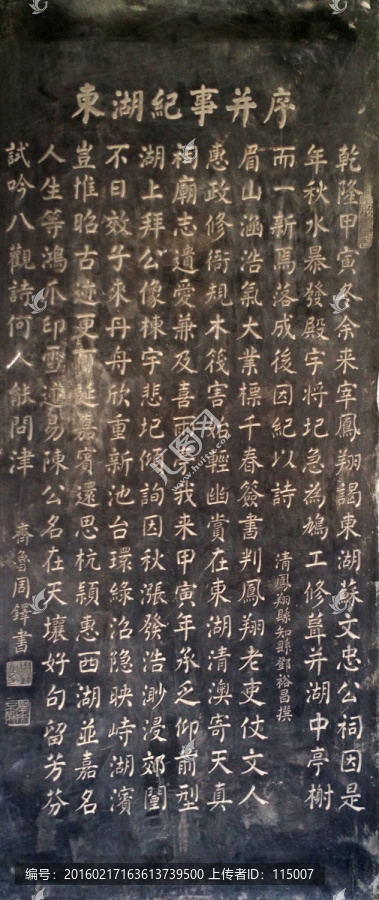 東湖紀事并序
乾隆甲寅冬余来宰鳳翔謁東湖蘇文忠公祠因是
年秋水暴發殿宇将圮急為鳩工修葺并湖中亭榭
而一新焉落成後因紀以詩
清鳳翔縣知縣鄧裕昌撰
眉山涵浩氣大業標千春簽書判鳳翔老吏仗文人
惠政修衙規木筏害始輕幽賞在東湖清澳寄天真
祠廟志遺愛兼及喜雨亭我来甲寅年承乏仰前型
湖上拜公像棟宇悲圮傾詢因秋漲發浩渺浸郊闉
不日效子来丹舟欣重新池台環綠沼隐映峙湖濱
豈惟昭古迹更可延嘉賓還思杭潁惠西湖並嘉名
人生等鴻爪印雪道易陳公名在天壤好句留芳芬
試吟八觀詩何人能問津
齊魯周鐸書
编号：20160217163613739500 上传者ID：115007